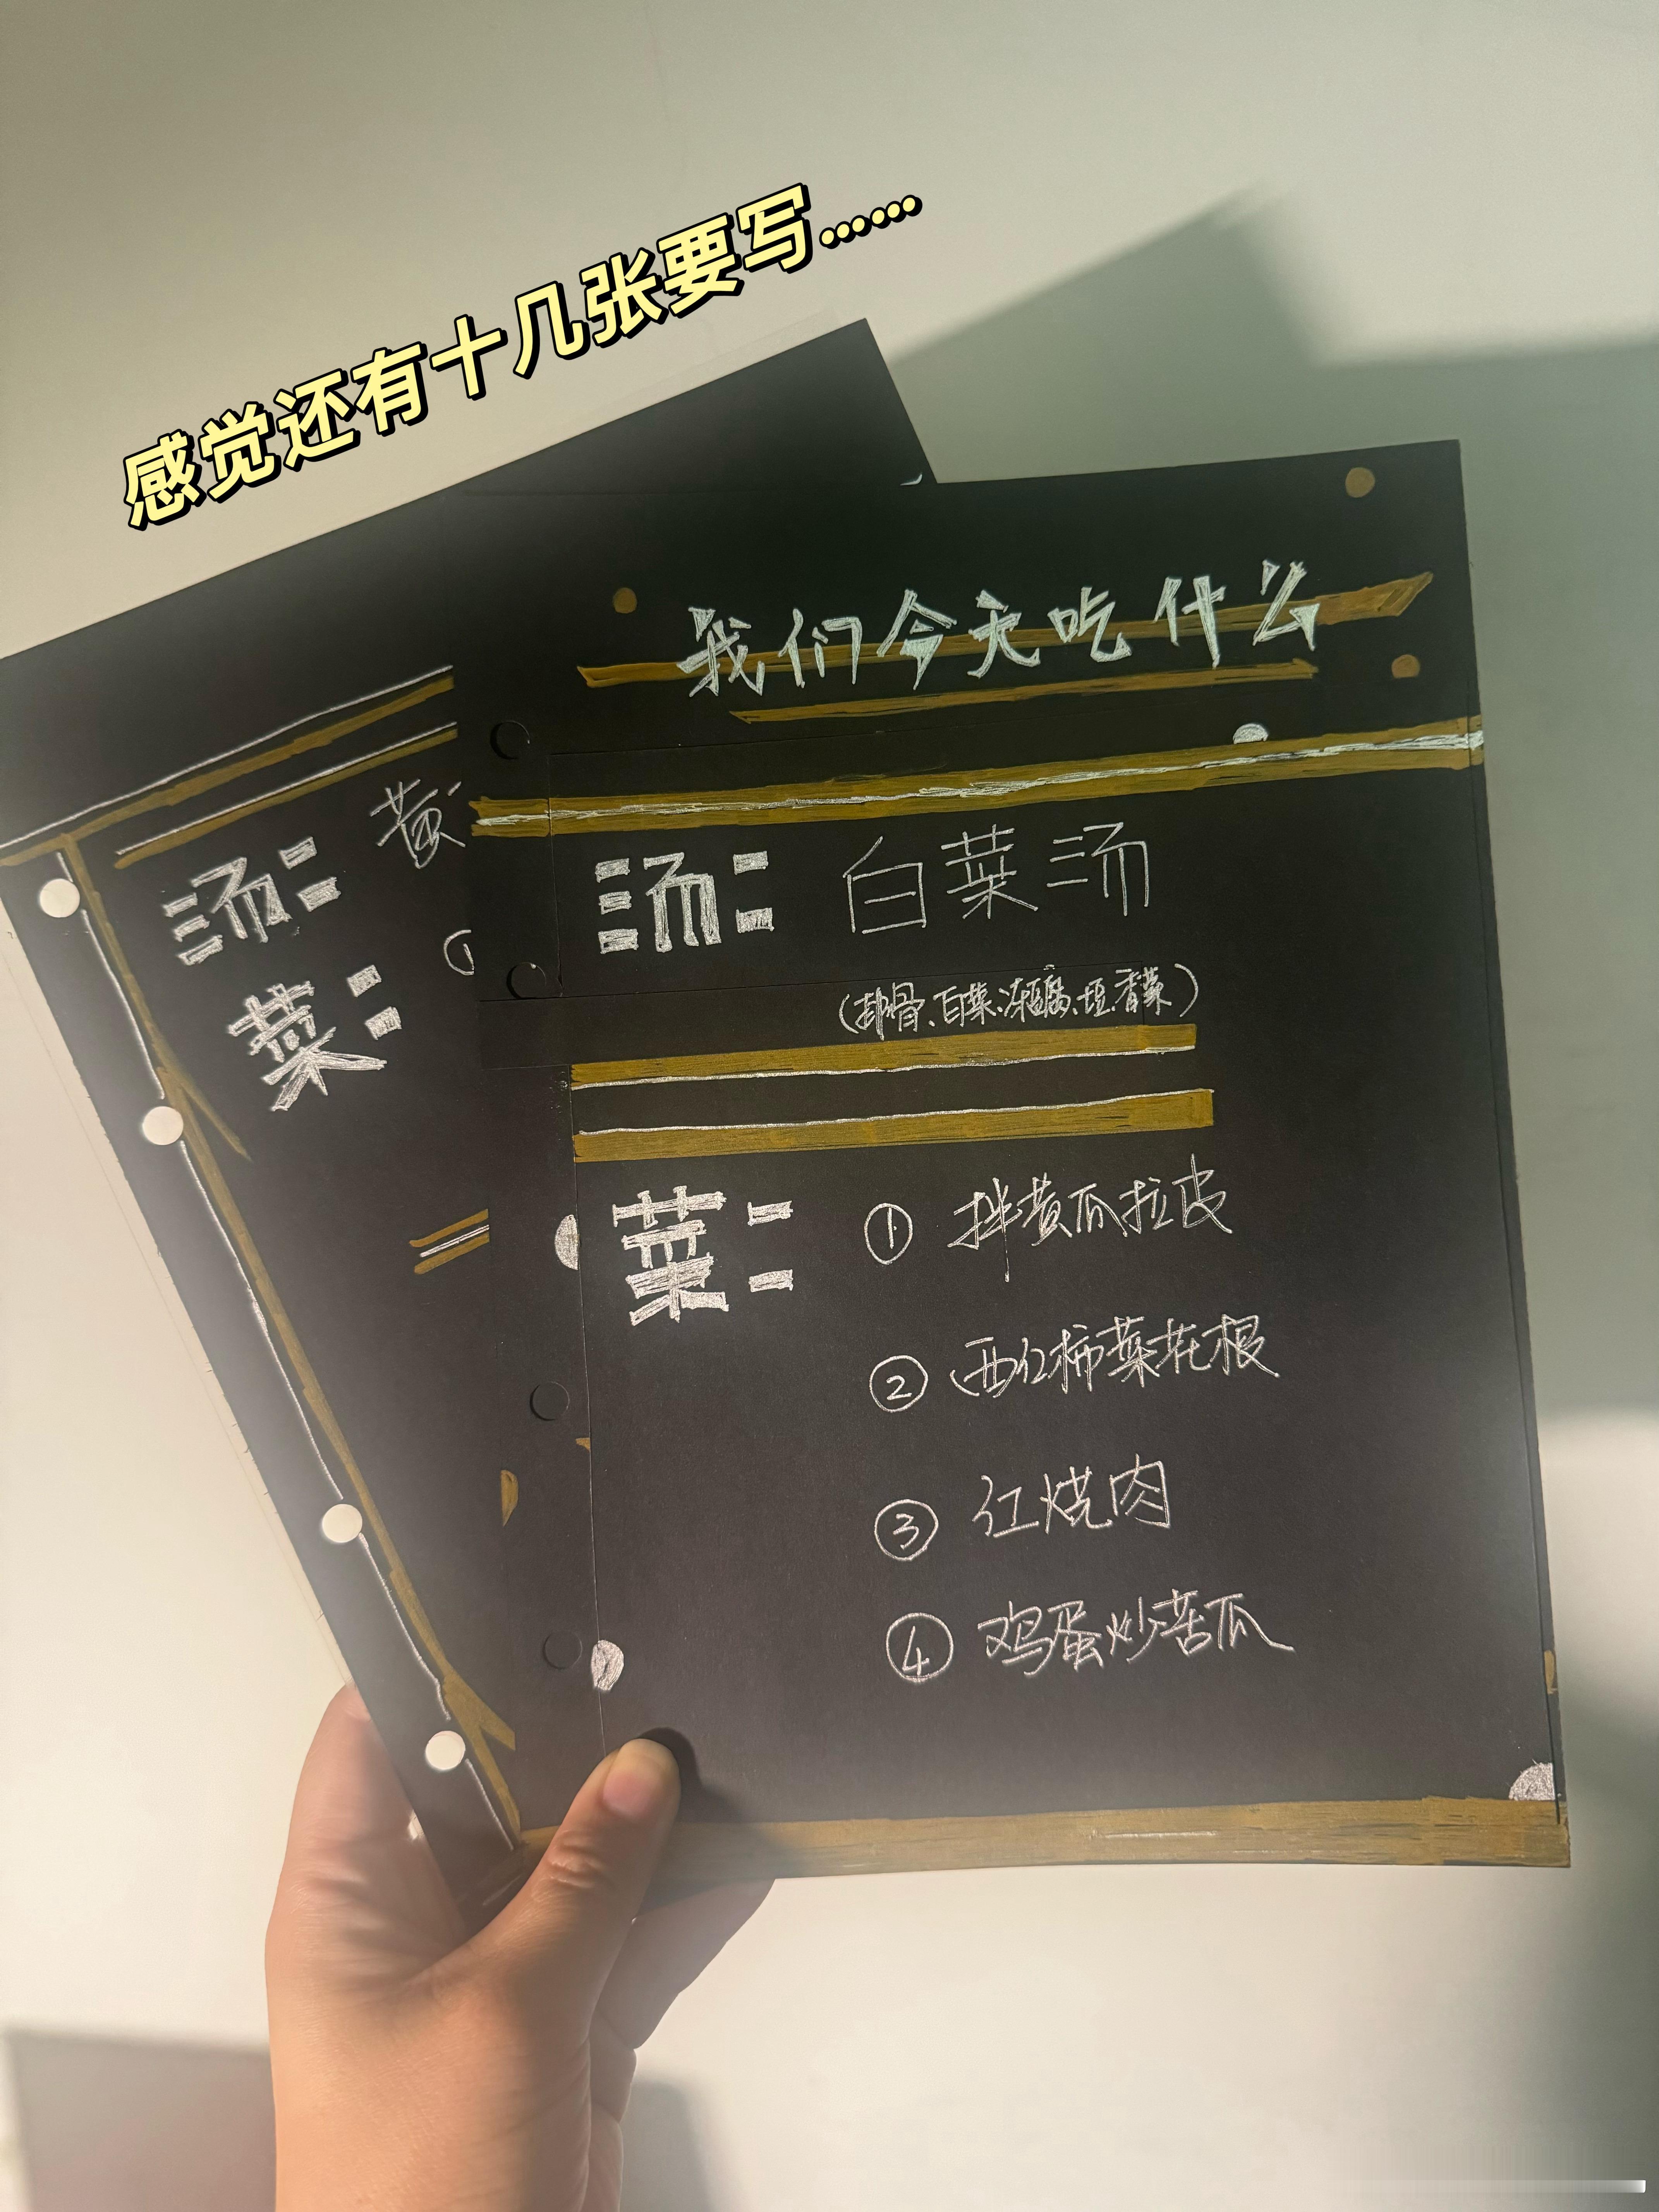 感觉还有十几张要写……
我们今天吃什么
汤：白菜汤
（排骨、白菜、冻豆腐、豆、香菜）
菜：① 拌黄瓜拉皮
② 西红柿菜花根
③ 红烧肉
④ 鸡蛋炒苦瓜
汤：黄
菜：